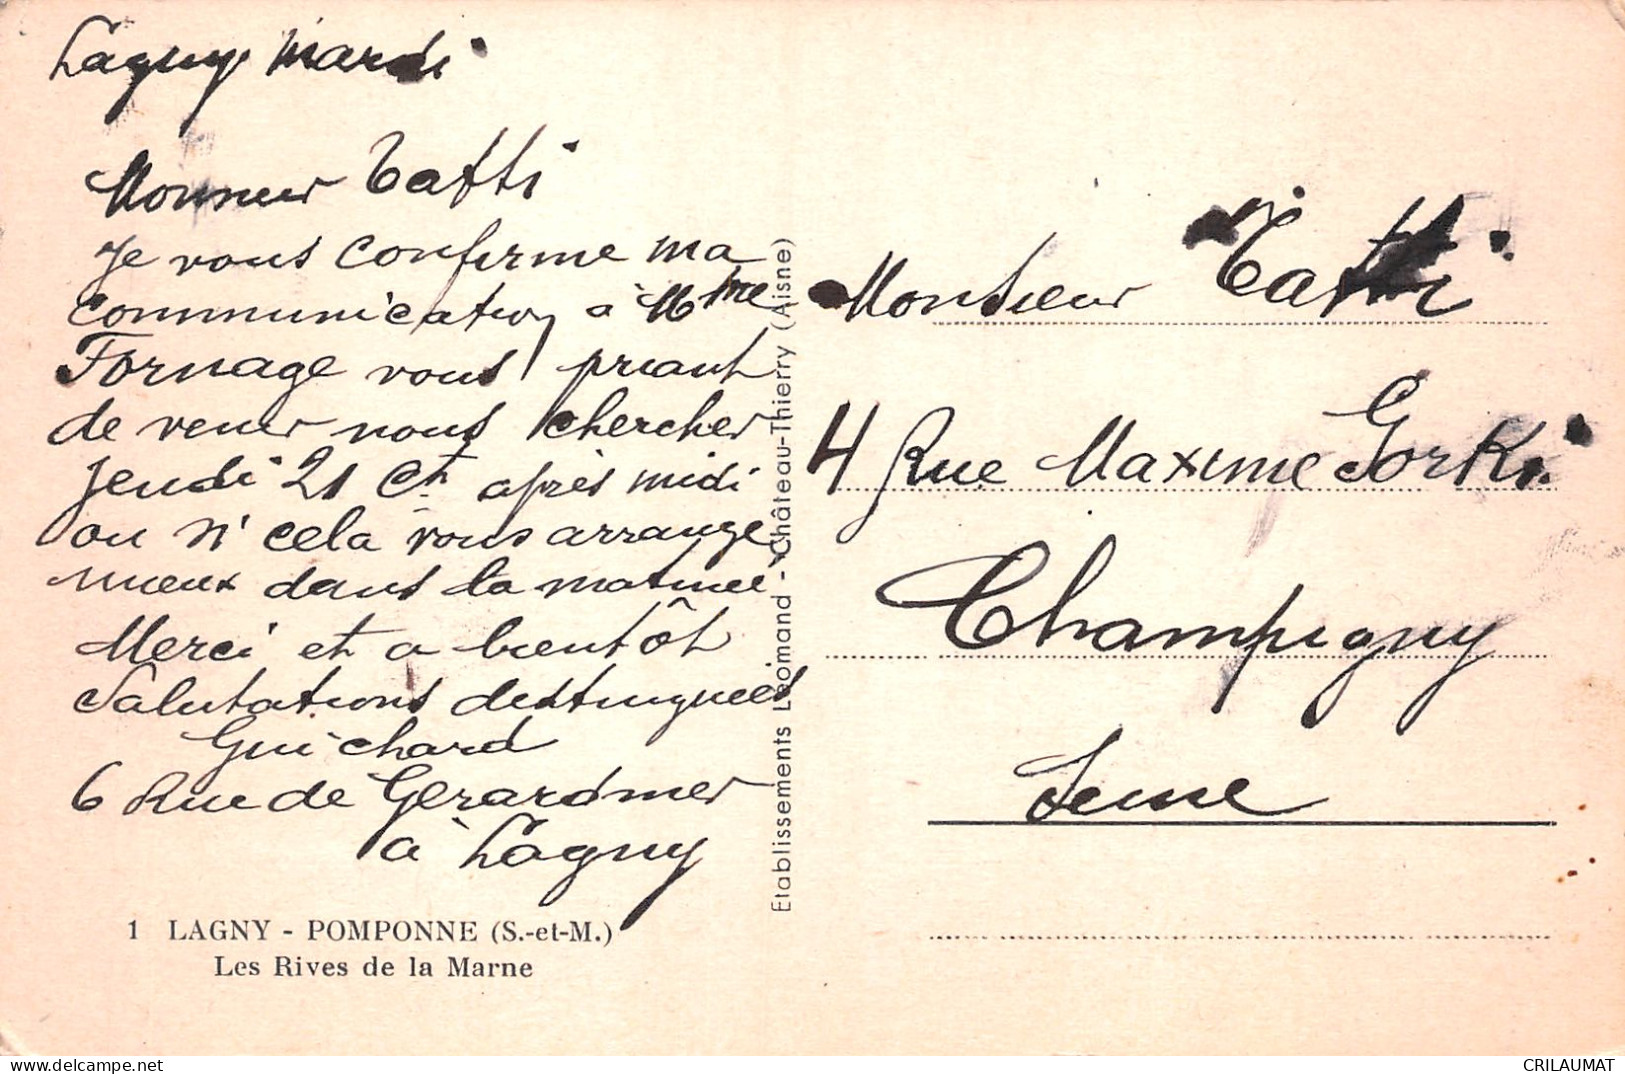 Lagny Mardi
Monsieur Tatti
Je vous confirme ma
communication à Mme
Fornage vous priant
de venir nous chercher
Jeudi 21 Ct après midi
ou si cela vous arrange
mieux dans la matinée
Merci et a bientôt
Salutations destinguées
Guichard
6 Rue de Gerardmer
à Lagny
1 LAGNY - POMPONNE (S.-et-M.)
Les Rives de la Marne
Etablissements Leomand - Château-Thierry (Aisne)
Monsieur Tatti
4 Rue Maxime Gorki
Champigny
Seine
delcampe.net
CRILAUMAT